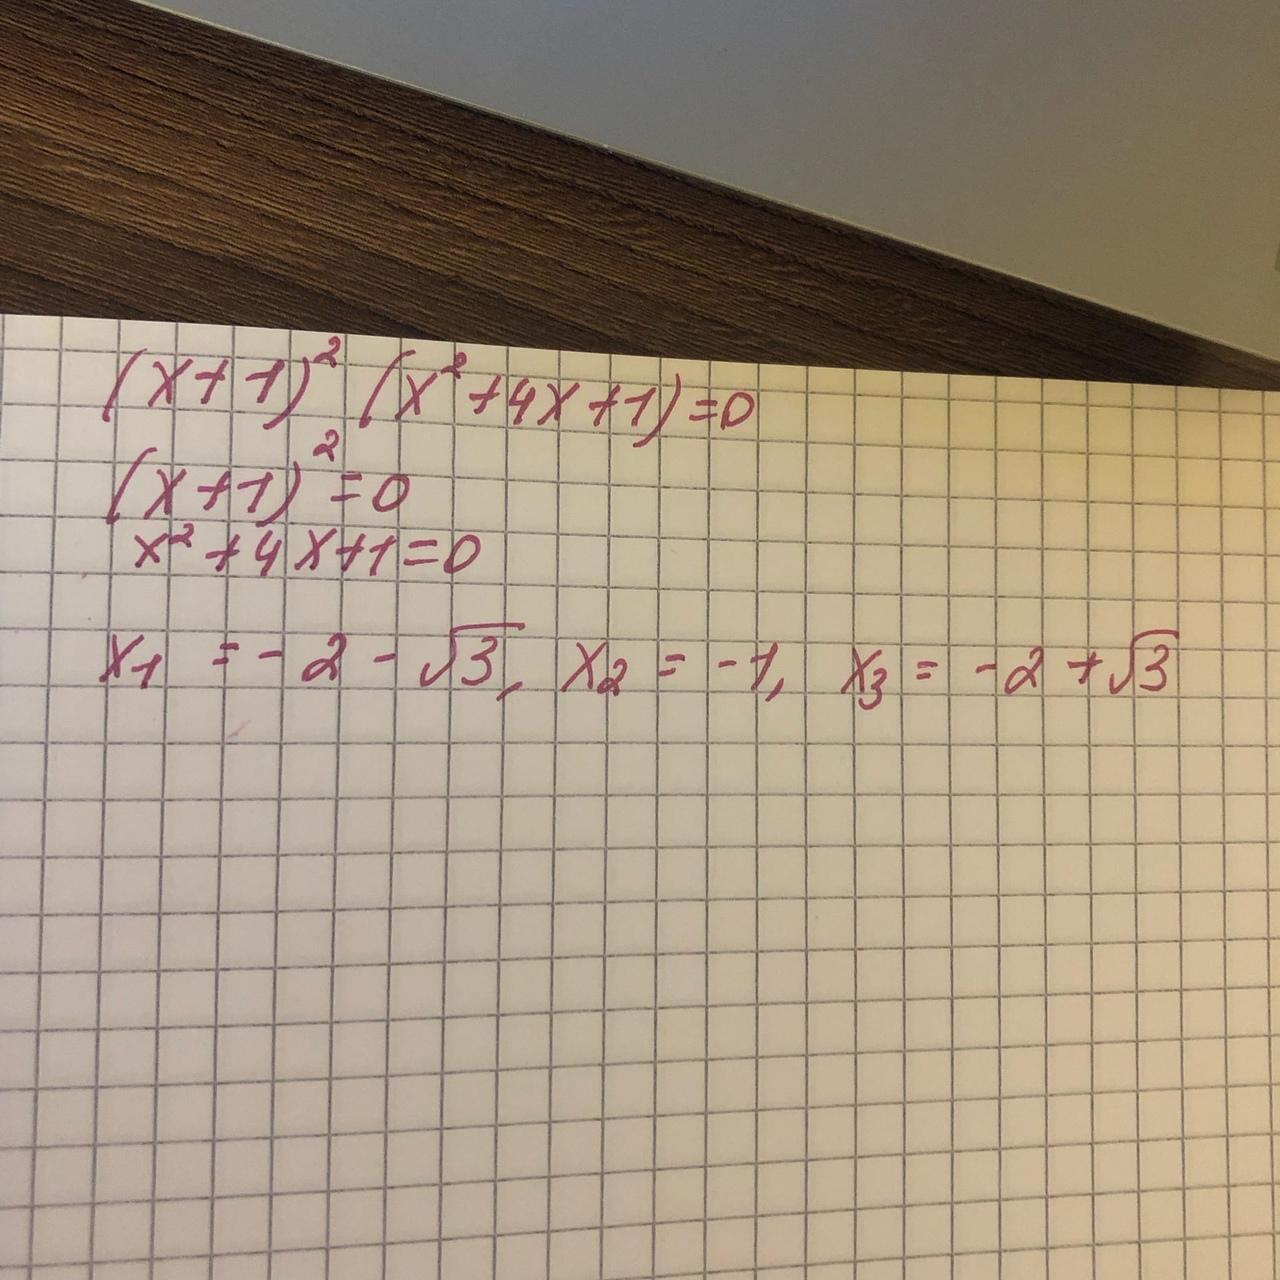 (x+1)² (x²+4x+1)=0
(x+1)²=0
x²+4x+1=0
x₁ = -2-√3, x₂ = -1, x₃ = -2+√3